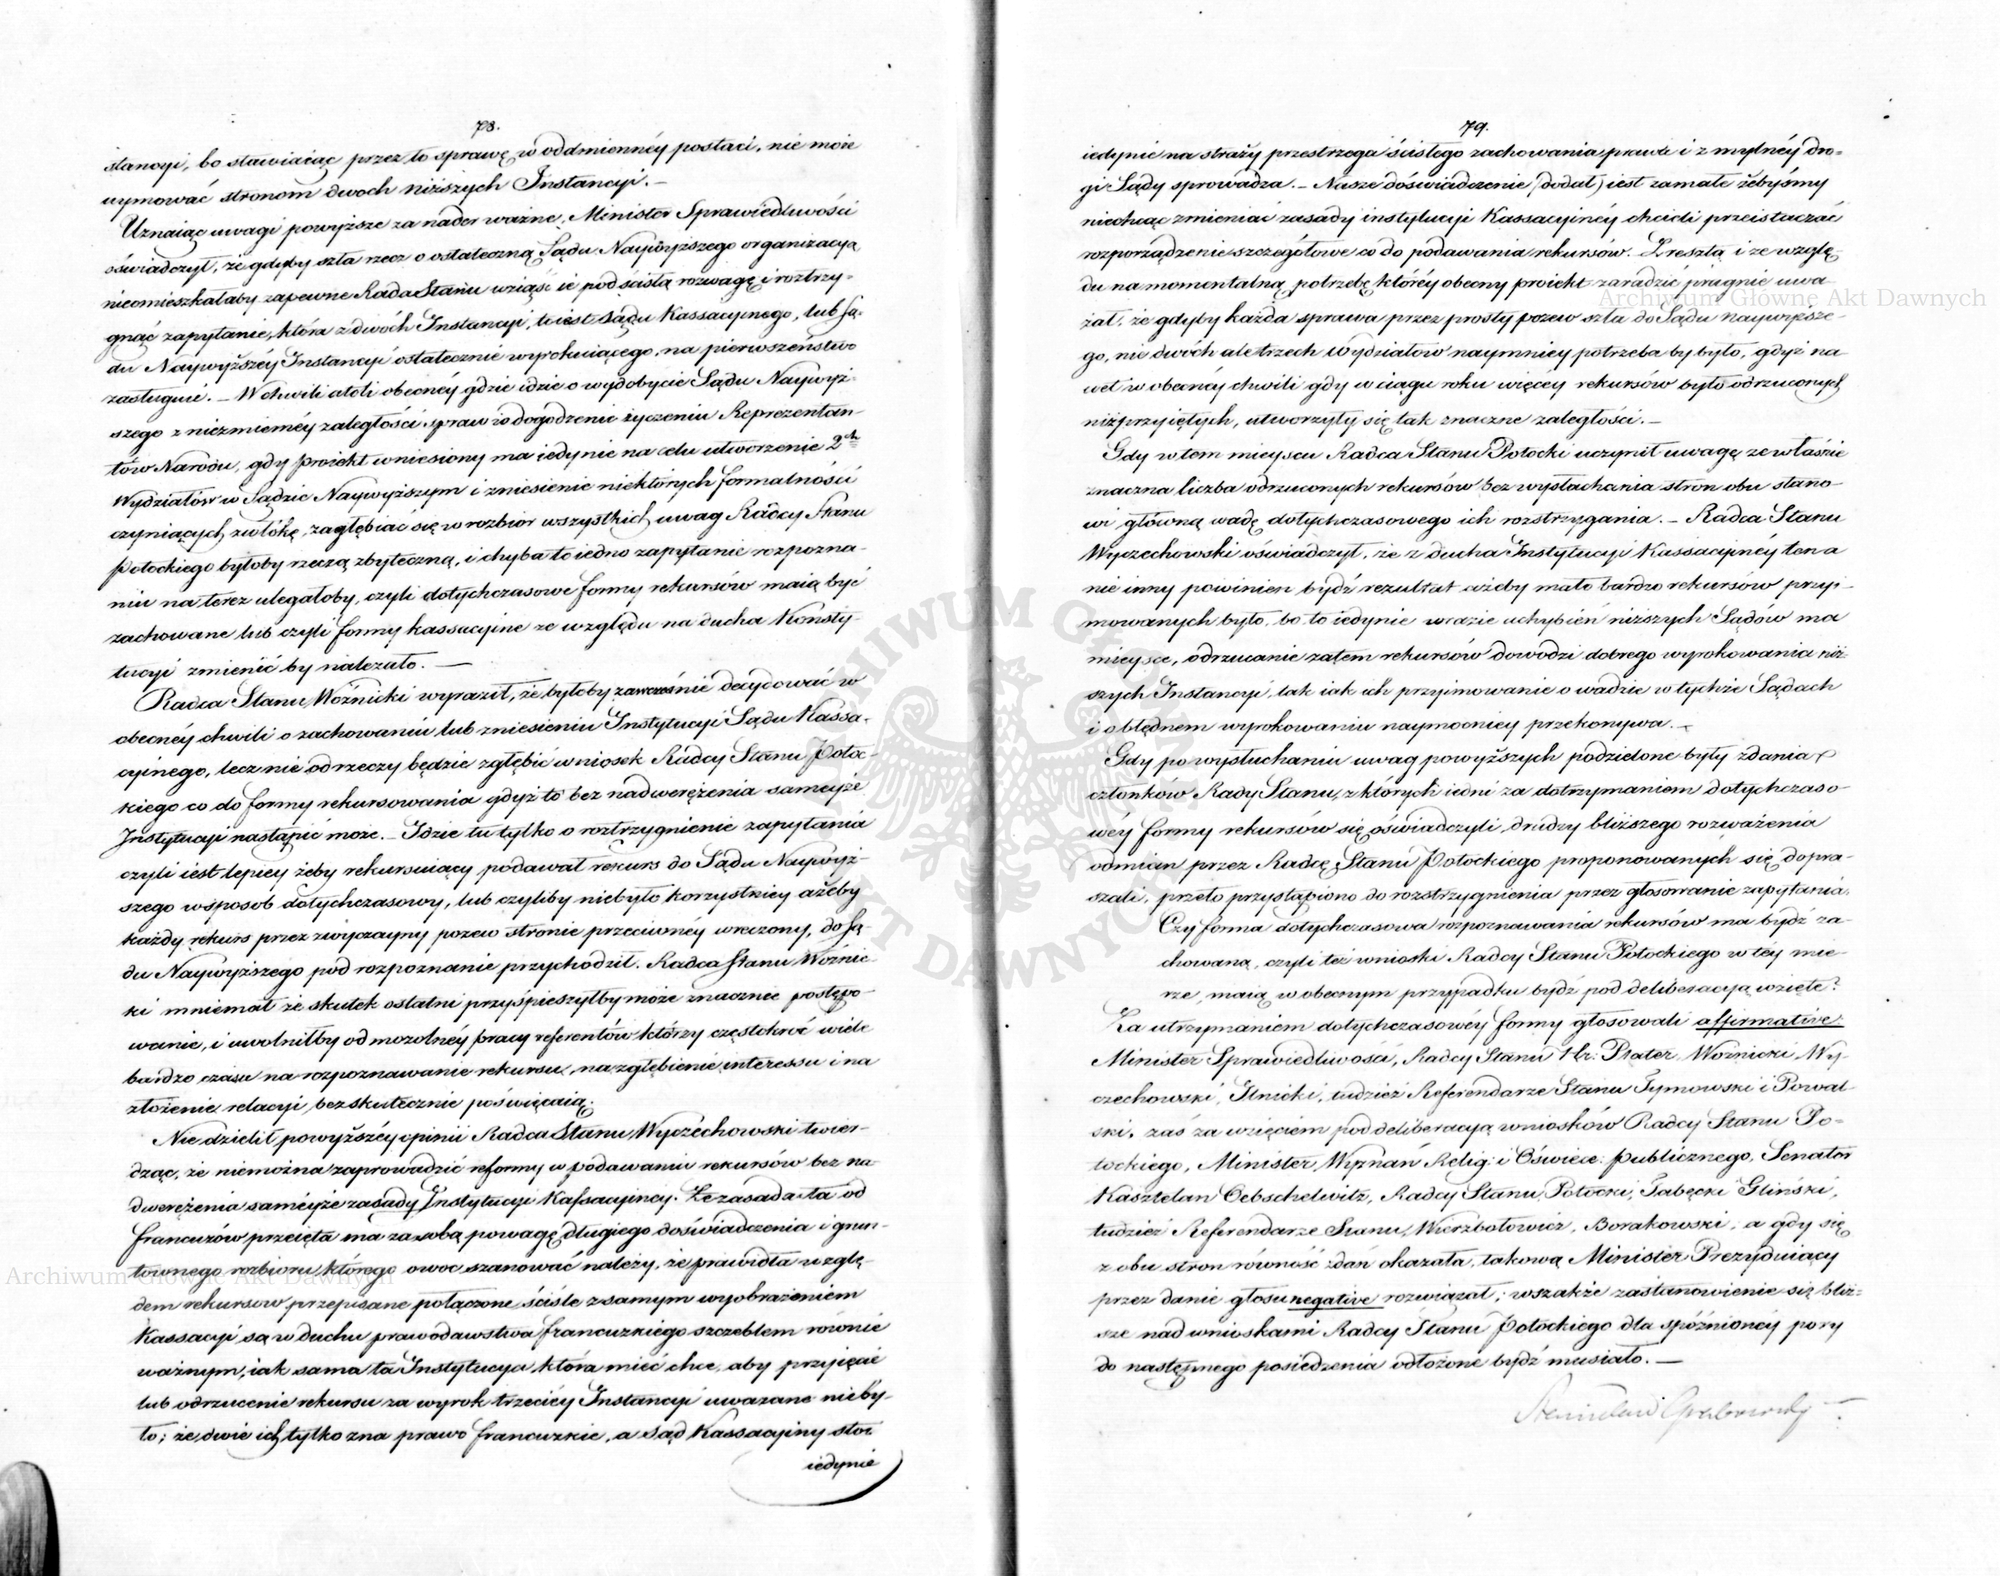 78.
stancyi, bo stawiaiąc przez to sprawę w oddmiennéy postaci, nie może
uymować stronom dwoch niższych Instancyi.—
Uznaiąc uwagi powyższe za nader ważne, Minister Sprawiedliwości
oświadczył, że gdyby szła rzecz o ostateczną Sądu Naywyższego organizacyą
nieomieszkałaby zapewne Rada Stanu wziąść ie pod ścisłą rozwagę i roztrzy-
gnąć zapytanie, która z dwóch Instancyi, to iest Sądu Kassacyinego, lub Są-
du Naywyższéy Instancyi ostatecznie wyrokuiącego, na pierwszeństwo
zasługuie.— W chwili atoli obecnéy gdzie idzie o wydobycie Sądu Naywyż-
szego z niezmierney zaległości spraw i o dogodzenie życzeniu Reprezentan-
tów Narodu, gdy proiekt wniesiony ma iedynie na celu utworzenie 2ch
Wydziałów w Sądzie Naywyższym i zniesienie niektórych formalności
czyniących zwłókę, zagłębiać się w rozbiór wszystkich uwag Radcy Stanu
Potockiego byłoby rzeczą zbyteczną, i chyba to iedno zapytanie rozpozna-
niu na teraz ulegałoby, czyli dotychczasowe formy rekursów maią być
zachowane lub czyli formy kassacyine ze względu na ducha Konsty-
tucyi zmienić by należało.—
Radca Stanu Woźnicki wyraził, że byłoby zawcześnie decydować w
obecnéy chwili o zachowaniu lub zniesieniu Instytucyi Sądu Kassa-
cyinego, lecz nie od rzeczy będzie zgłębić wniosek Radcy Stanu Potoc-
kiego co do formy rekursowania gdyż to bez nadwerężenia saméyże
Instytucyi nastąpić może.— Idzie tu tylko o roztrzygnienie zapytania
czyli iest lepiey żeby rekursuiący podawał rekurs do Sądu Naywyż-
szego w sposob dotychczasowy, lub czyliby niebyło korzystniey ażeby
każdy rekurs przez zwyczayny pozew stronie przeciwnéy wręczony, do Są-
du Naywyższego pod rozpoznanie przychodził. Radca Stanu Woźnic-
ki mniemał że skutek ostatni przyśpieszyłby może znacznie postępo-
wanie, i uwolniłby od mozolnéy pracy referentów którzy częstokroć wiele
bardzo czasu na rozpoznawanie rekursu, na zgłębienie interessu i na
złożenie relacyi, bezskutecznie poświęcaią.
Nie dzielił powyższéy opinii Radca Stanu Wyczechowski twier-
dząc, że niemożna zaprowadzić reformy w podawaniu rekursów bez na-
dwerężenia saméyże zasady Instytucyi Kassacyiney. Że zasada ta od
francuzów przeięta ma za sobą powagę długiego doświadczenia i grun-
townego rozbioru którego owoc szanować należy, że prawidła wzglę-
dem rekursow przepisane połączone ściśle z samym wyobrażeniem
Kassacyi są w duchu prawodawstwa francuzkiego szczeblem równie
ważnym, iak sama ta Instytucya która mieć chce, aby przyięcie
lub odrzucenie rekursu za wyrok trzeciéy Instancyi uważane nieby-
ło; że dwie ich tylko zna prawo francuzkie, a Sąd Kassacyiny stoi
iedynie
79.
iedynie na straży przestrzega ścisłego zachowania prawa i z mylnéy dro-
gi Sądy sprowadza.— Nasze doświadczenie (dodał) iest zamałe żebyśmy
niechcąc zmieniać zasady instytucyi Kassacyinéy chcieli przeistaczać
rozporządzenie szczegółowe co do podawania rekursów. Zresztą i ze wzglę-
du na momentalną potrzebę któréy obecny proiekt zaradzić pragnie uwa
żał, że gdyby każda sprawa przez prosty pozew szła do Sądu naywyższe-
go, nie dwóch ale trzech Wydziałów naymniey potrzeba by było, gdyż na
wet w obecnéy chwili gdy w ciągu roku więcéy rekursów było odrzuconych
niż przyiętych, utworzyły się tak znaczne zaległości.—
Gdy w tem mieyscu Radca Stanu Potocki uczynił uwagę że właśnie
znaczna liczba odrzuconych rekursów bez wysłuchania stron obu stano-
wi główną wadę dotychczasowego ich rozstrzygania.— Radca Stanu
Wyczechowski oświadczył, że z ducha Instytucyi Kassacyinéy ten a
nie inny powinien bydź rezultat ażeby mało bardzo rekursów przyi-
mowanych było, bo to iedynie w razie uchybień niższych Sądów ma
mieysce, odrzucanie zatem rekursów dowodzi dobrego wyrokowania niż-
szych Instancyi, tak iak ich przyimowanie o wadzie w tychże Sądach
i obłędnem wyrokowaniu naymocniey przekonywa.—
Gdy po wysłuchaniu uwag powyższych podzielone były zdania
członków Rady Stanu, z których iedni za dotrzymaniem dotychczaso-
wéy formy rekursów się oświadczyli, drudzy bliższego rozważenia
odmian przez Radcę Stanu Potockiego proponowanych się dopra-
szali, przeto przystąpiono do rozstrzygnienia przez głosowanie zapytania.
Czy forma dotychczasowa rozpoznawania rekursów ma bydź za-
chowaną, czyli też wnioski Radcy Stanu Potockiego w téy mie-
rze, maią w obecnym przypadku bydź pod deliberacyą wzięte?
Za utrzymaniem dotychczasowéy formy głosowali affirmative
Minister Sprawiedliwości, Radcy Stanu Hr: Plater, Woźnicki, Wy-
czechowski, Ilnicki, tudzież Referendarze Stanu Tymowski i Powal-
ski, zaś za wzięciem pod deliberacyą wniosków Radcy Stanu Po-
tockiego, Minister Wyznań Relig: i Oświec: publicznego, Senator
Kasztelan Oebschelwitz, Radcy Stanu, Potocki, Tabęcki Gliński,
tudzież Referendarze Stanu, Wierzbołowicz, Borakowski; a gdy się
z obu stron równość zdań okazała, takową Minister Prezyduiący
przez danie głosu negative rozwiązał; wszakże zastanowienie się bliż-
sze nad wnioskami Radcy Stanu Potockiego dla spóźnionéy pory
do następnego posiedzenia odłożone bydź musiało.—
Stanisław Grabowski
Archiwum Główne Akt Dawnych
Archiwum Główne Akt Dawnych
ARCHIWUM GŁÓWNE AKT DAWNYCH